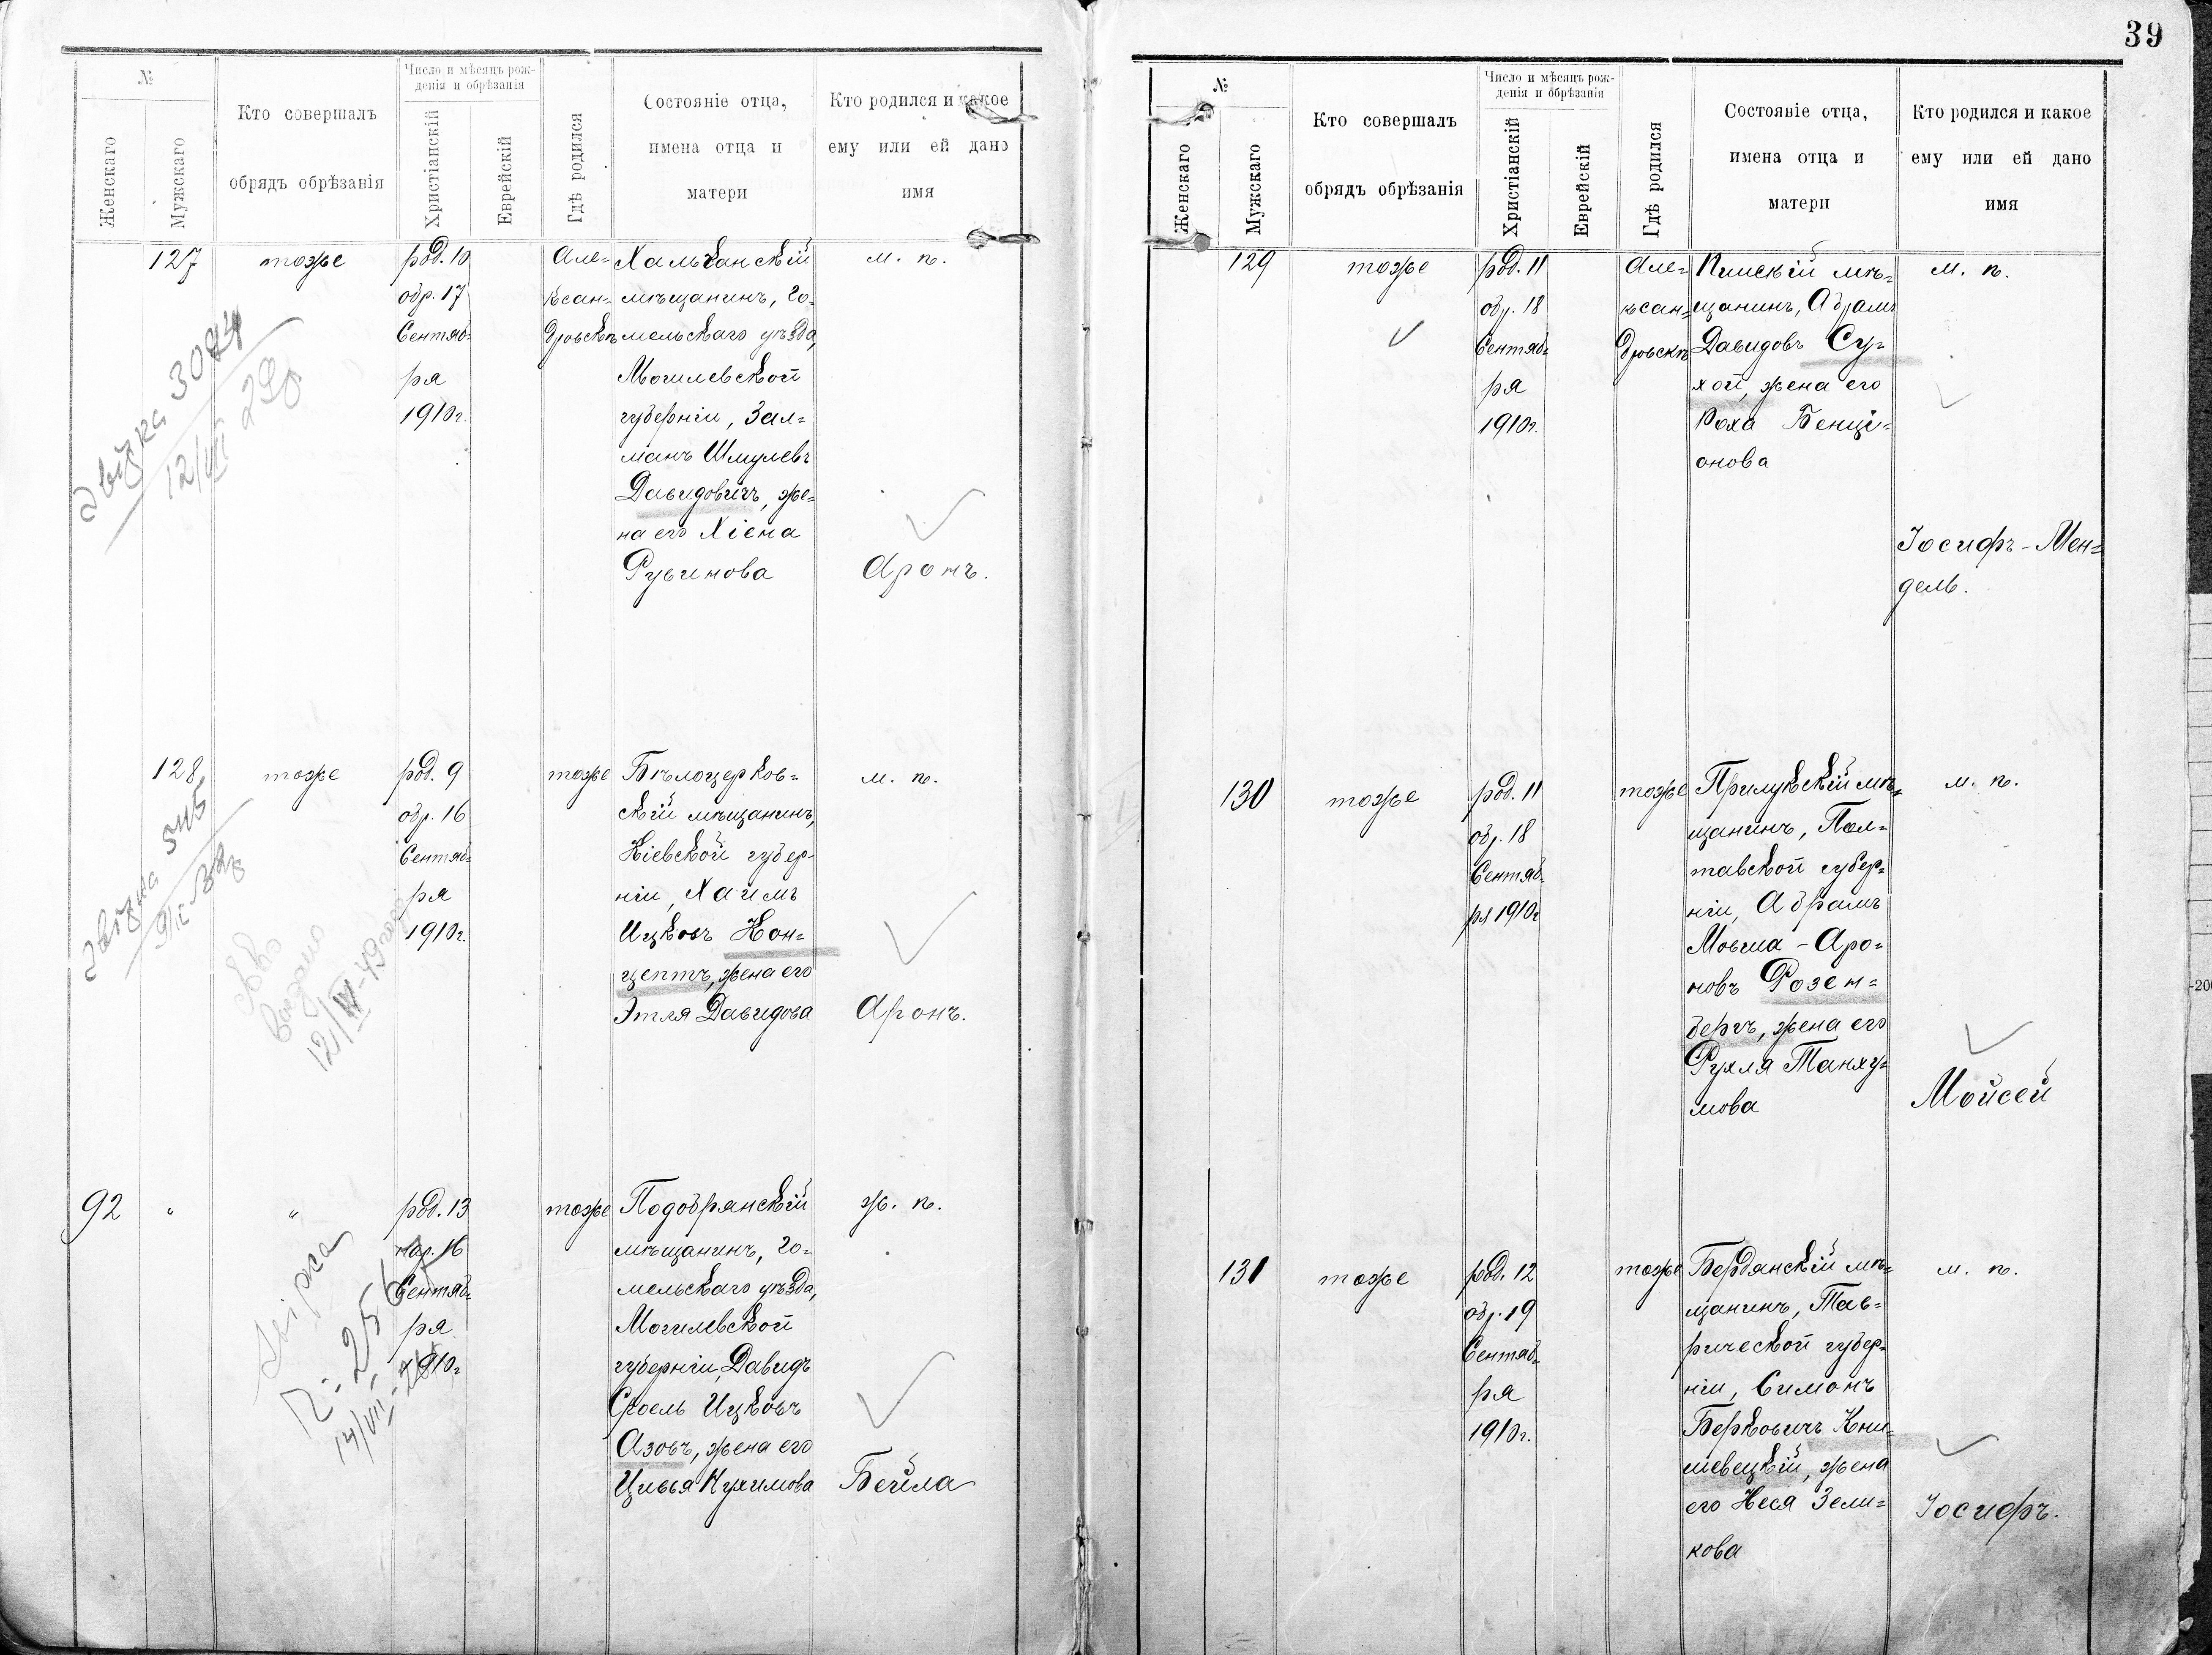 39
№
Женскаго
Мужскаго
Кто совершалъ
обрядъ обрѣзанія
Число и мѣсяцъ рож-
денія и обрѣзанія
Христіанскій
Еврейскій
Гдѣ родился
Состояніе отца,
имена отца и
матери
Кто родился и какое
ему или ей дано
имя
127
тоже
род. 10
обр. 17
Сентяб=
ря
1910г.
Але=
ксан=
дровскъ
Хальчанскій
мѣщанинъ, Го=
мельскаго уѣзда,
Могилевской
губерніи, Зал=
манъ Шмулевъ
Давидовичъ, же=
на его Хіена
Рувинова
м. п.
Аронъ.
12/VII
128
тоже
род. 9
обр. 16
Сентяб=
ря
1910г.
тоже
Бѣлоцерков=
скій мѣщанинъ,
Кіевской губер-
ніи, Хаимъ
Ицковъ Кон=
цептъ, жена его
Этля Давидова
м. п.
Аронъ.
видано
12/IV-49
92
"
"
род. 13
нар. 16
Сентяб=
ря
1910г
тоже
Подобрянскій
мѣщанинъ, Го=
мельскаго уѣзда,
Могилевской
губерніи, Давидъ
Сроель Ицковъ
Азовъ, жена его
Цивья
ж. п.
Бейла
14/VII
№
Женскаго
Мужскаго
Кто совершалъ
обрядъ обрѣзанія
Число и мѣсяцъ рож-
денія и обрѣзанія
Христіанскій
Еврейскій
Гдѣ родился
Состояніе отца,
имена отца и
матери
Кто родился и какое
ему или ей дано
имя
129
тоже
род. 11
обр. 18
Сентяб=
ря
1910г.
Але=
ксан=
дровскъ
Пинскій мѣ=
щанинъ, Абрамъ
Давидовъ Су=
хой, жена его
Роха Бенці=
онова
м. п.
Іосифъ-Мен=
дель.
130
тоже
род. 11
обр. 18
Сентяб=
ря 1910г
тоже
Прилукскій мѣ=
щанинъ, Пол=
тавской губер=
ніи, Абрамъ
Мовша-Аро=
новъ Розен=
бергъ, жена его
Рухля Танху=
мова
м. п.
Мойсей
131
тоже
род. 12
обр. 19
Сентяб=
ря
1910г.
тоже
Бердянскій мѣ=
щанинъ, Тав=
рической губер=
ніи, Симонъ
Берковичъ Кни=
шевецкій, жена
его Неся Зели=
кова
м. п.
Іосифъ.